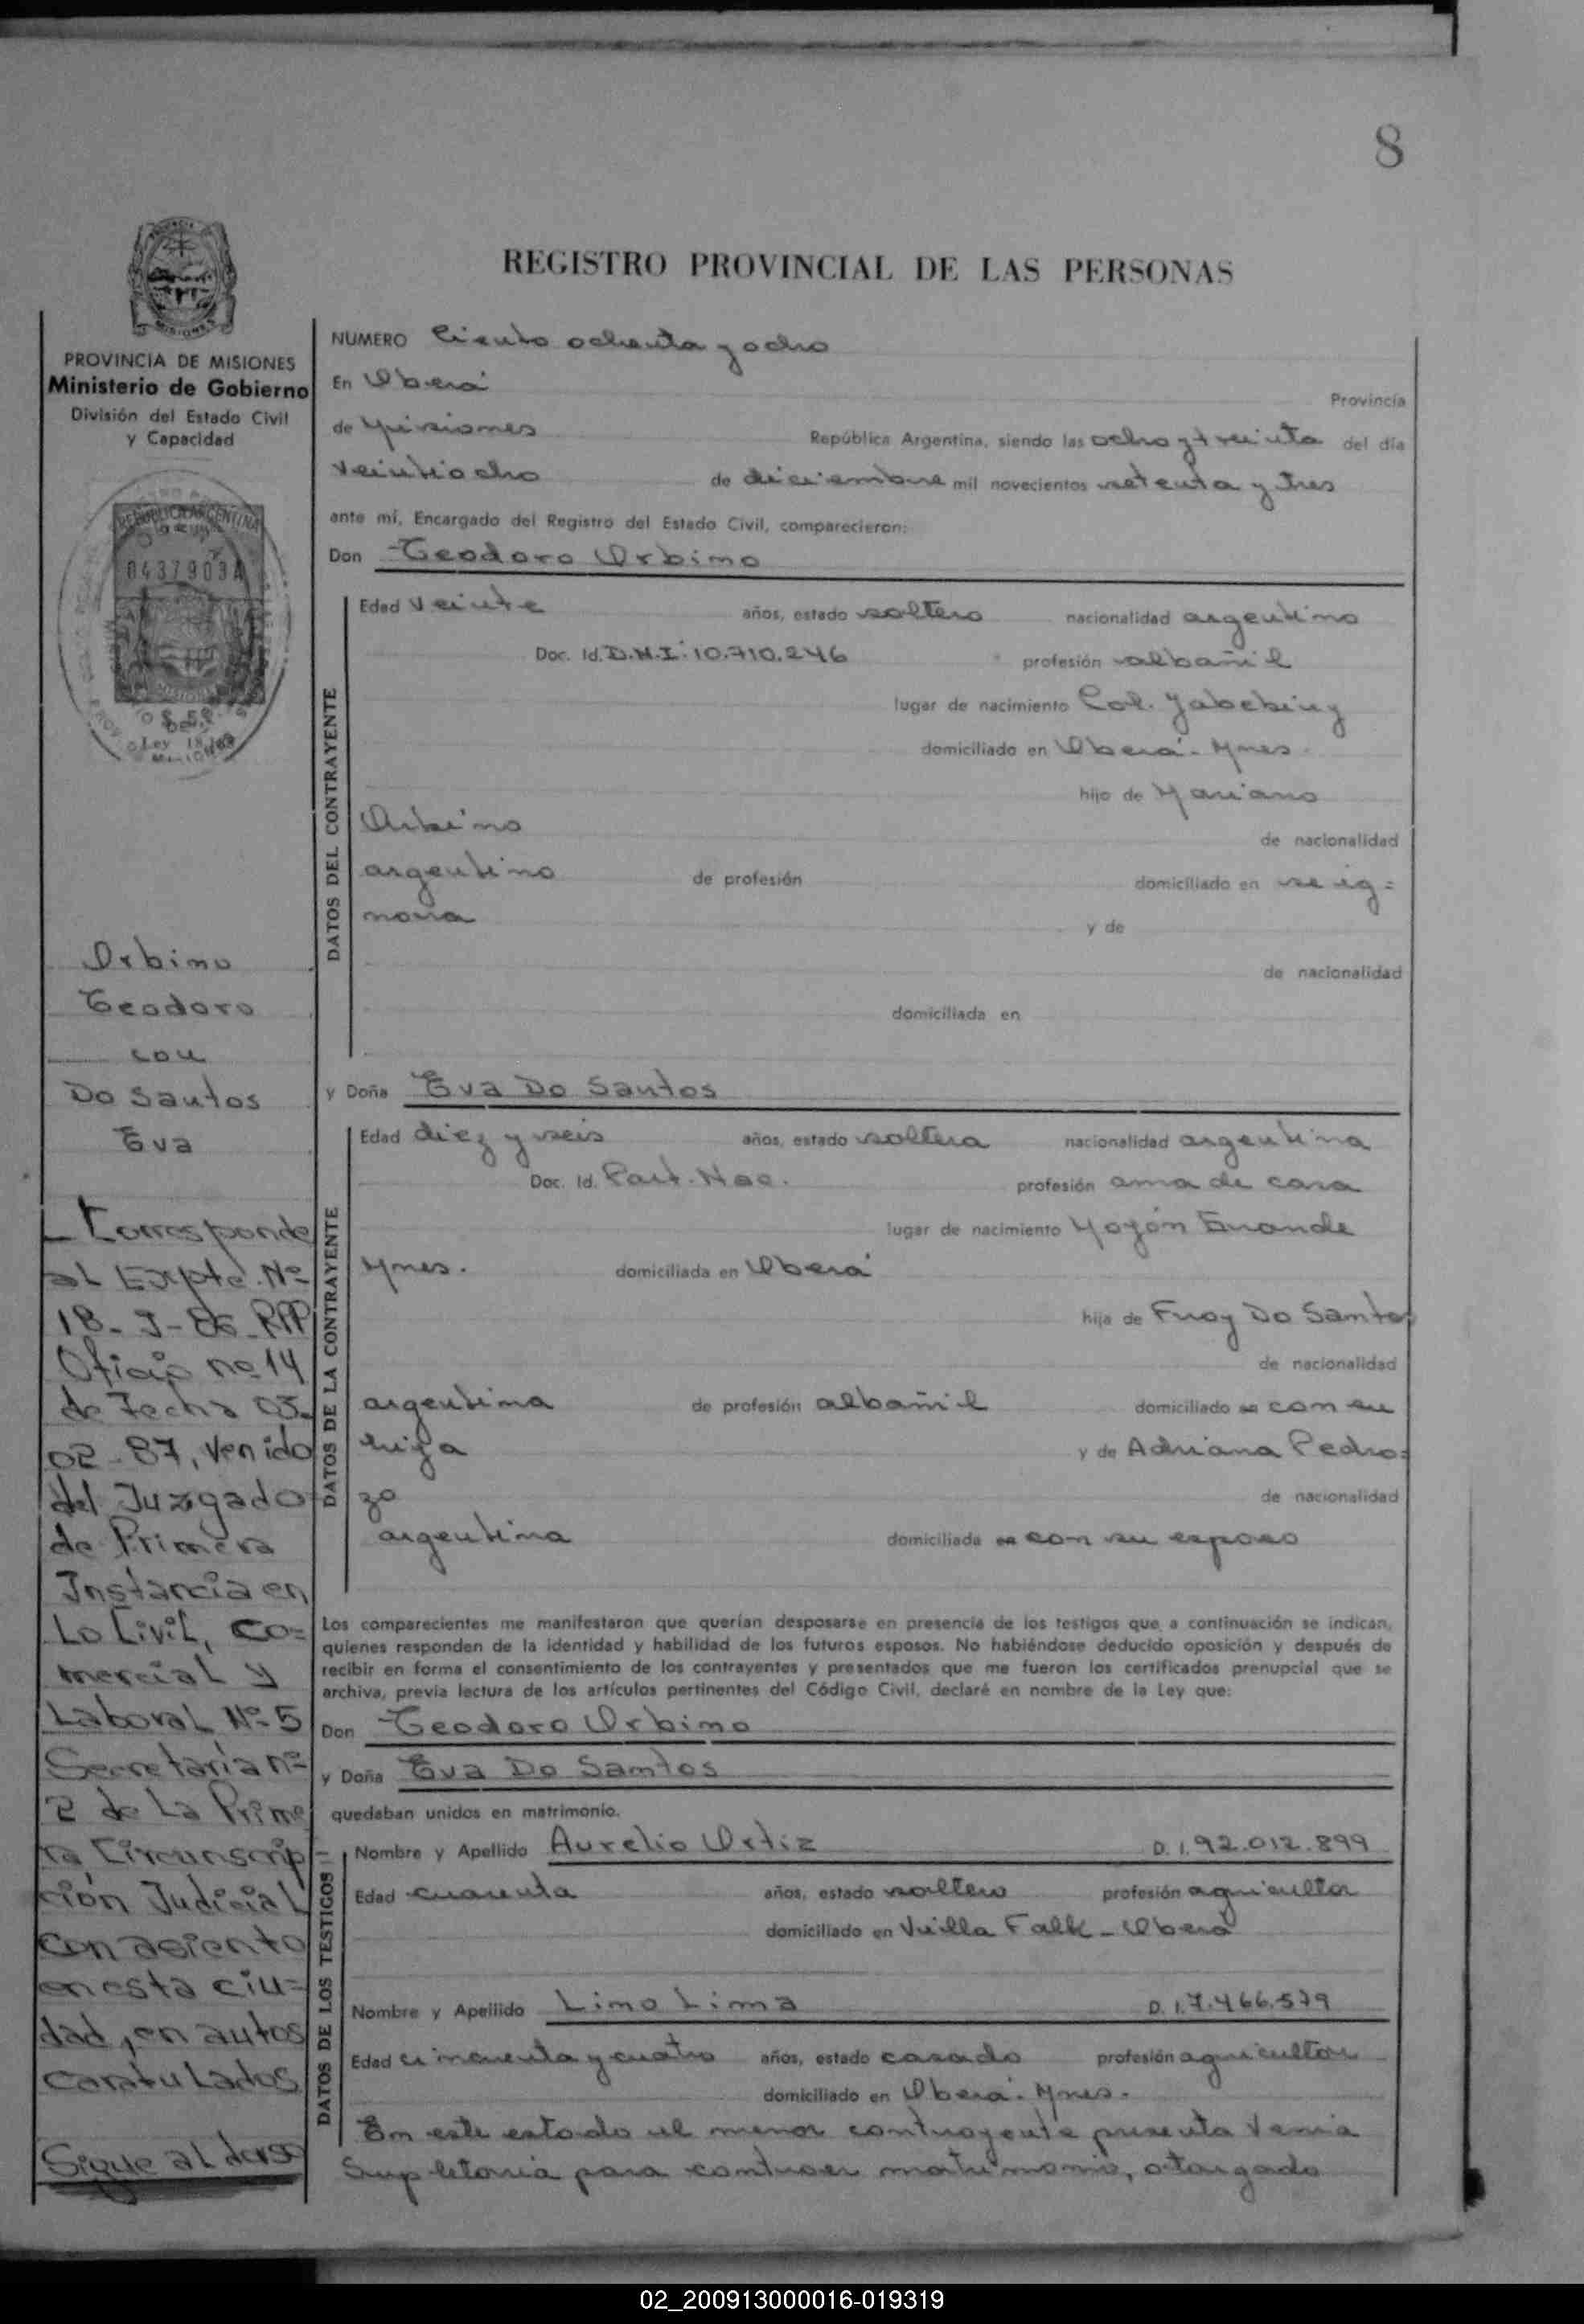 8
REGISTRO PROVINCIAL DE LAS PERSONAS
MISIONES
PROVINCIA DE MISIONES
Ministerio de Gobierno
División del Estado Civil
y Capacidad
REPUBLICA ARGENTINA
0437903A
Orbino
Teodoro
con
Do Santos
Eva
Corresponde
al Expte. Nº
18-J-86-RPP
Oficio nº 14
de Fecha 03-
02-87, venido
del Juzgado
de Primera
Instancia en
Lo Civil, Co=
mercial y
Laboral Nº 5
Secretaría nº
2 de La Prime
ra Circunscrip=
ción Judicial
con asiento
en esta ciu=
dad, en autos
caratulados
Sigue al dorso
NUMERO Ciento ochenta y ocho
En Oberá Provincia
de Misiones República Argentina, siendo las ocho y treinta del día
veintiocho de diciembre mil novecientos setenta y tres
ante mí, Encargado del Registro del Estado Civil, comparecieron:
Don Teodoro Orbino
DATOS DEL CONTRAYENTE
Edad veinte años, estado soltero nacionalidad argentino
Doc. Id. D.N.I. 10.710.246 profesión albañil
lugar de nacimiento Col. Yabebiry
domiciliado en Oberá - Mnes.
hijo de Mariano
Orbino de nacionalidad
argentino de profesión domiciliado en se ig=
nora y de
de nacionalidad
domiciliada en
y Doña Eva Do Santos
DATOS DE LA CONTRAYENTE
Edad diez y seis años, estado soltera nacionalidad argentina
Doc. Id. Part. Nac. profesión ama de casa
lugar de nacimiento Mojón Grande
Mnes. domiciliada en Oberá
hija de Froy Do Santos
de nacionalidad
argentina de profesión albañil domiciliado en con su
hija y de Adriana Pedro=
zo de nacionalidad
argentina domiciliada en con su esposo
Los comparecientes me manifestaron que querían desposarse en presencia de los testigos que a continuación se indican,
quienes responden de la identidad y habilidad de los futuros esposos. No habiéndose deducido oposición y después de
recibir en forma el consentimiento de los contrayentes y presentados que me fueron los certificados prenupcial que se
archiva, previa lectura de los artículos pertinentes del Código Civil, declaré en nombre de la Ley que:
Don Teodoro Orbino
y Doña Eva Do Santos
quedaban unidos en matrimonio.
DATOS DE LOS TESTIGOS
Nombre y Apellido Aurelio Ortiz D.I. 92.012.899
Edad cuarenta años, estado soltero profesión agricultor
domiciliado en Villa Falk - Oberá
Nombre y Apellido Lino Lima D.I. 7.466.579
Edad cincuenta y cuatro años, estado casado profesión agricultor
domiciliado en Oberá - Mnes.
En este estado el menor contrayente presenta Venia
Supletoria para contraer matrimonio, otorgado
02_200913000016-019319